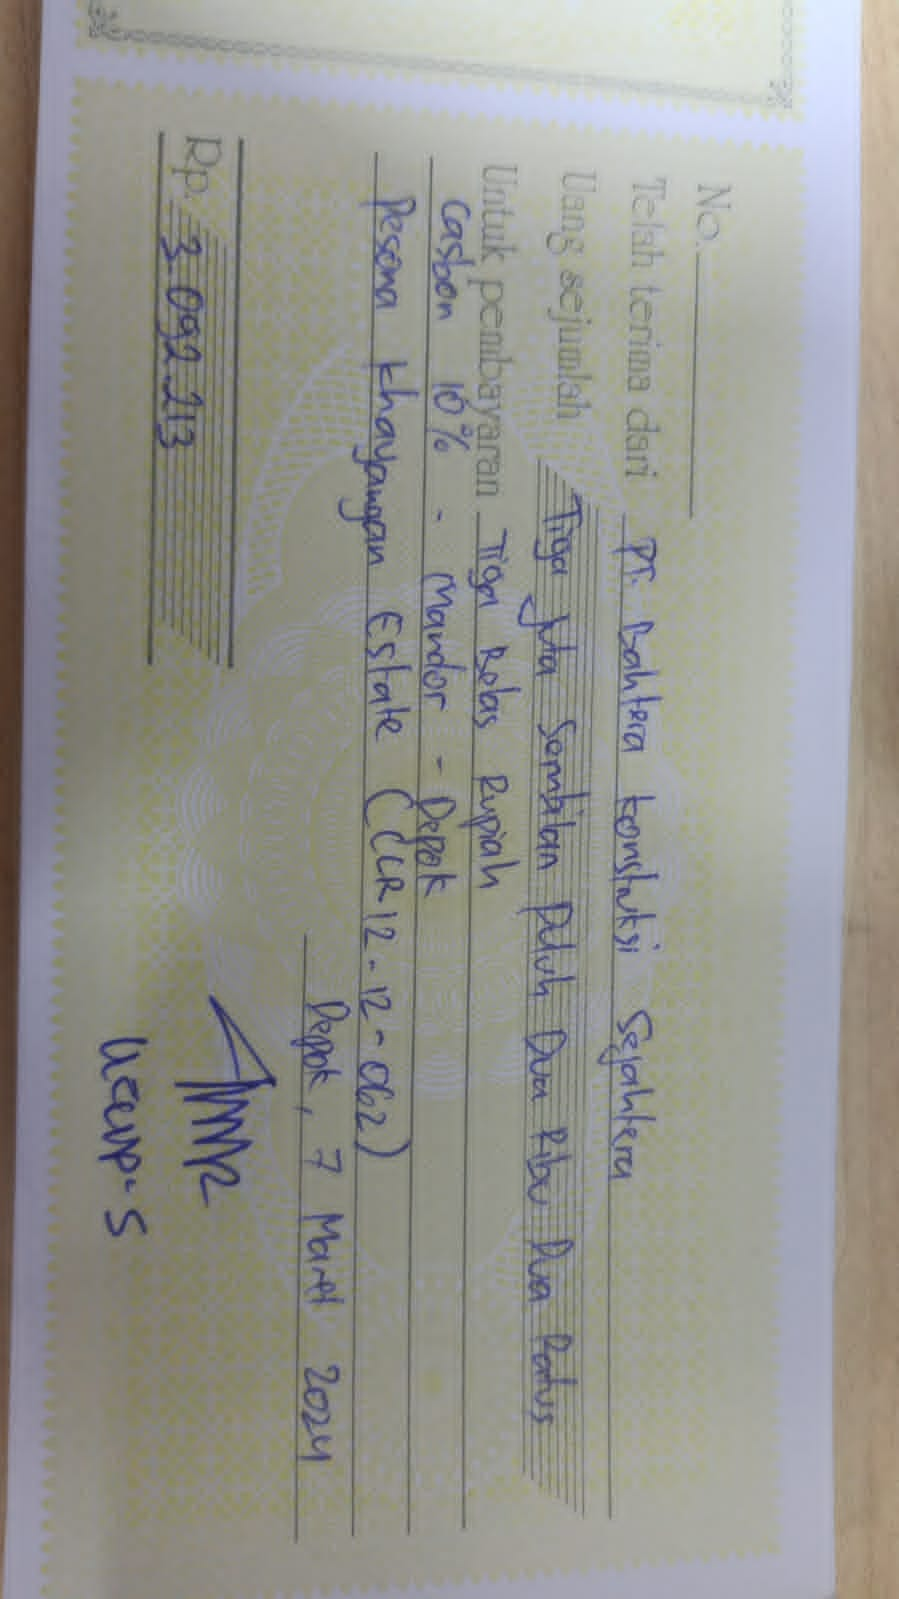 No.
Telah terima dari PT. Bahtera Konstruksi Sejahtera
Uang sejumlah Tiga Juta Sembilan Puluh Dua Ribu Dua Ratus
Untuk pembayaran Tiga Belas Rupiah
Casbon 10% - Mandor - Depok
Pesona Khayangan Estate (CLR 12-12-062)
Depok, 7 Maret 2024
Rp. 3.092.213
Ucup. S